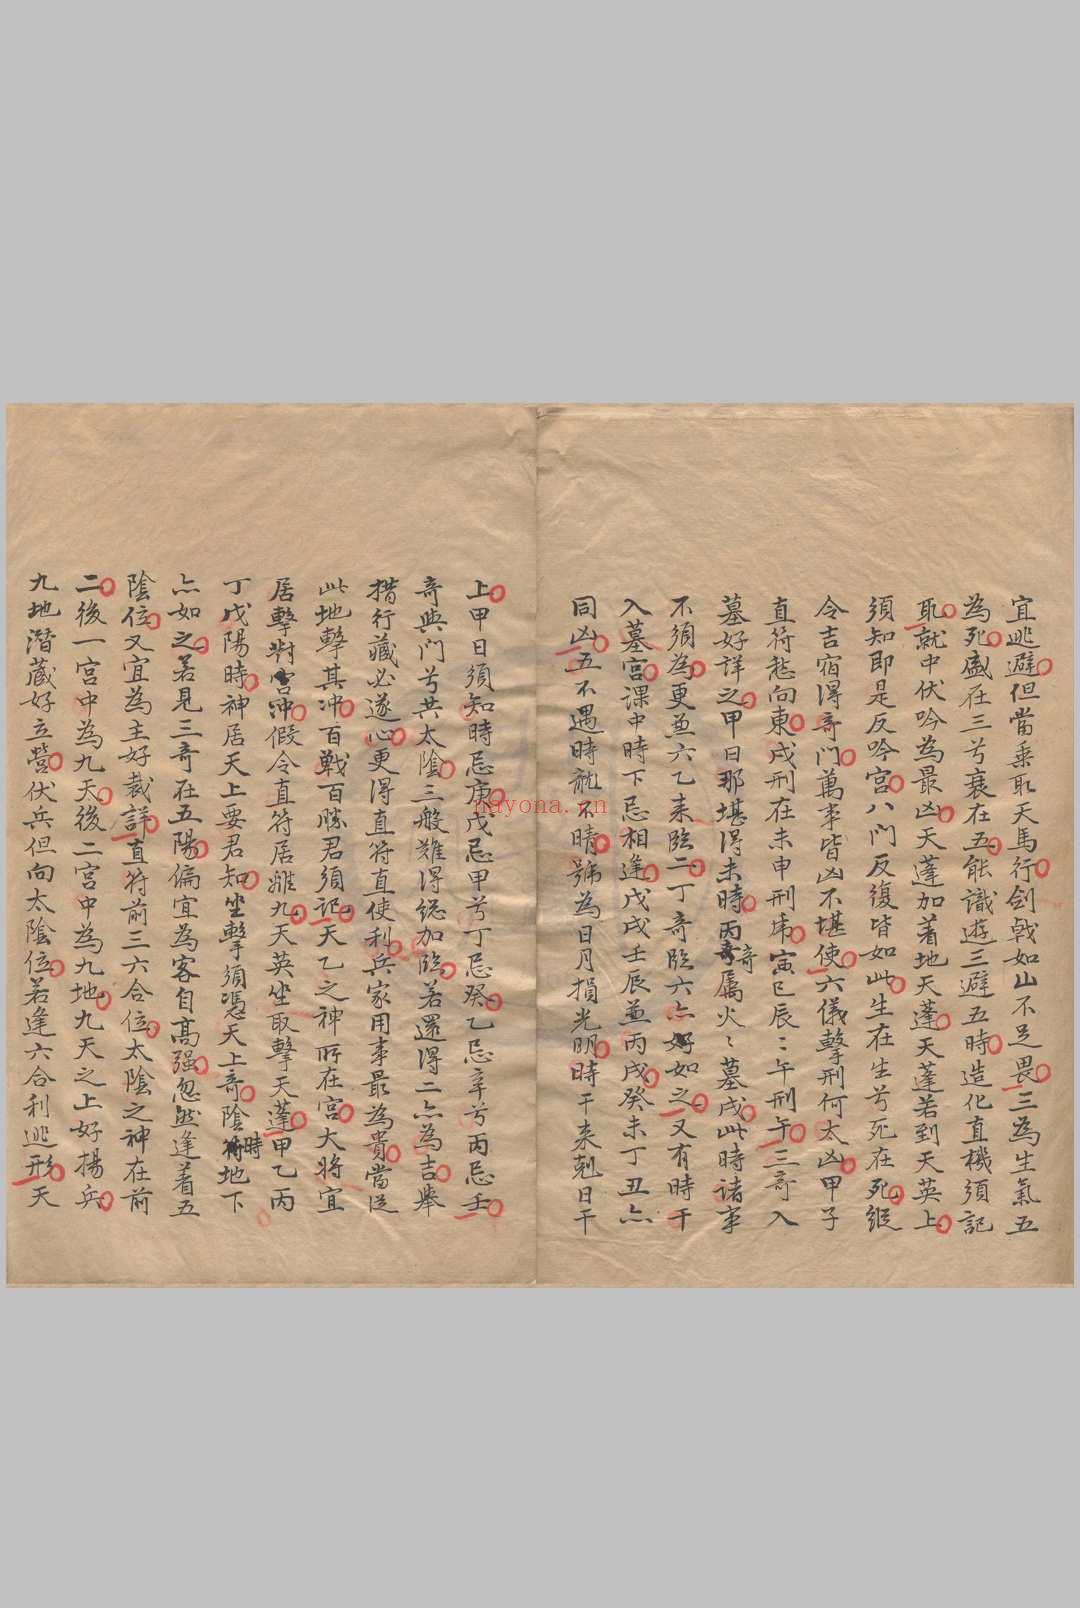 宜逃避但當乘取天馬行劍戟如山不足畏三為生氣五
為死盛在三兮衰在五能識遊三避五時造化直機須記
取就中伏吟為最凶天蓬加着地天蓬天蓬若到天英上
須知即是反吟宮八門反復皆如此生在生兮死在死縱
令吉宿得奇門萬事皆凶不堪使六儀擊刑何太凶甲子
直符愁向東戌刑在未申刑虎寅巳辰〻午刑午三奇入
墓好詳之甲日那堪得未時丙奇屬火〻墓戌此時諸事
不須為更兼六乙來臨二丁奇臨六亦如之又有時干
入墓宮課中時下忌相逢戊戌壬辰兼丙戌癸未丁丑亦
同凶五不遇時龍不晴號為日月損光明時干來尅日干
上甲日須知時忌庚戊忌甲兮丁忌癸乙忌辛兮丙忌壬
奇與門兮共太陰三般難得總加臨若還得二亦為吉舉
措行藏必遂心更得直符直使利兵家用事最為貴當從
此地擊其冲百戰百勝君須記天乙之神所在宮大將宜
居擊對宮冲假令直符居離九天英坐取擊天蓬甲乙丙
丁戊陽時神居天上要君知坐擊須憑天上奇陰時地下
亦如之若見三奇在五陽偏宜為客自高强忽然逢着五
陰位又宜為主好裁詳直符前三六合位太陰之神在前
二後一宮中為九天後二宮中為九地九天之上好揚兵
九地潛藏好立營伏兵但向太陰位若逢六合利逃形天
nayona.cn